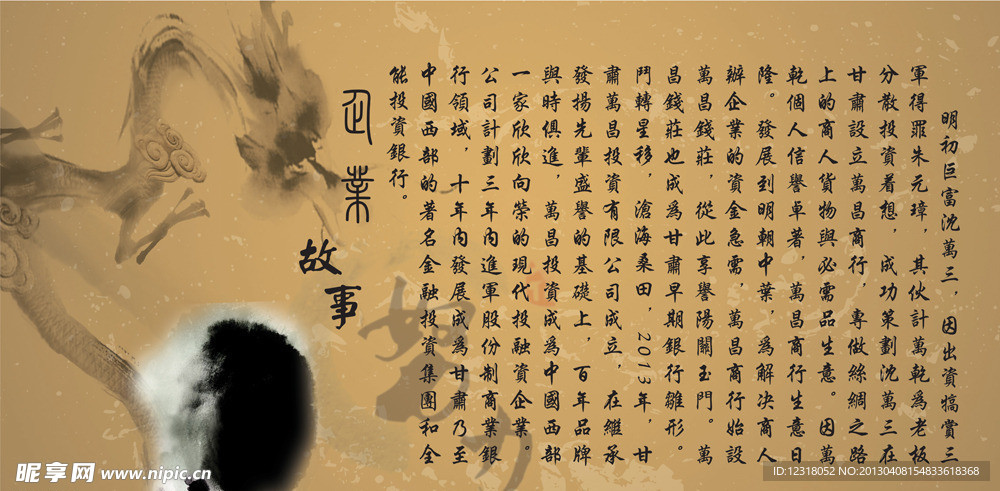 明初巨富沈萬三，因出資犒賞三
軍得罪朱元璋，其伙計萬乾為老板
分散投資着想，成功策劃沈萬三在
甘肅設立萬昌商行，專做絲綢之路
上的商人貨物與必需品生意。因萬
乾個人信譽卓著，萬昌商行生意日
隆。發展到明朝中葉，為解决商人
辦企業的資金急需，萬昌商行始設
萬昌錢莊，從此享譽陽關玉門。萬
昌錢莊也成為甘肅早期銀行雛形。
鬥轉星移，滄海桑田，2013年，甘
肅萬昌投資有限公司成立，在繼承
發揚先輩盛譽的基礎上，百年品牌
與時俱進，萬昌投資成為中國西部
一家欣欣向榮的現代投融資企業。
公司計劃三年内進軍股份制商業銀
行領域，十年内發展成為甘肅乃至
中國西部的著名金融投資集團和全
能投資銀行。
企業
故事
努力
昵享网 www.nipic.cn
ID:12318052 NO:20130408154833618368